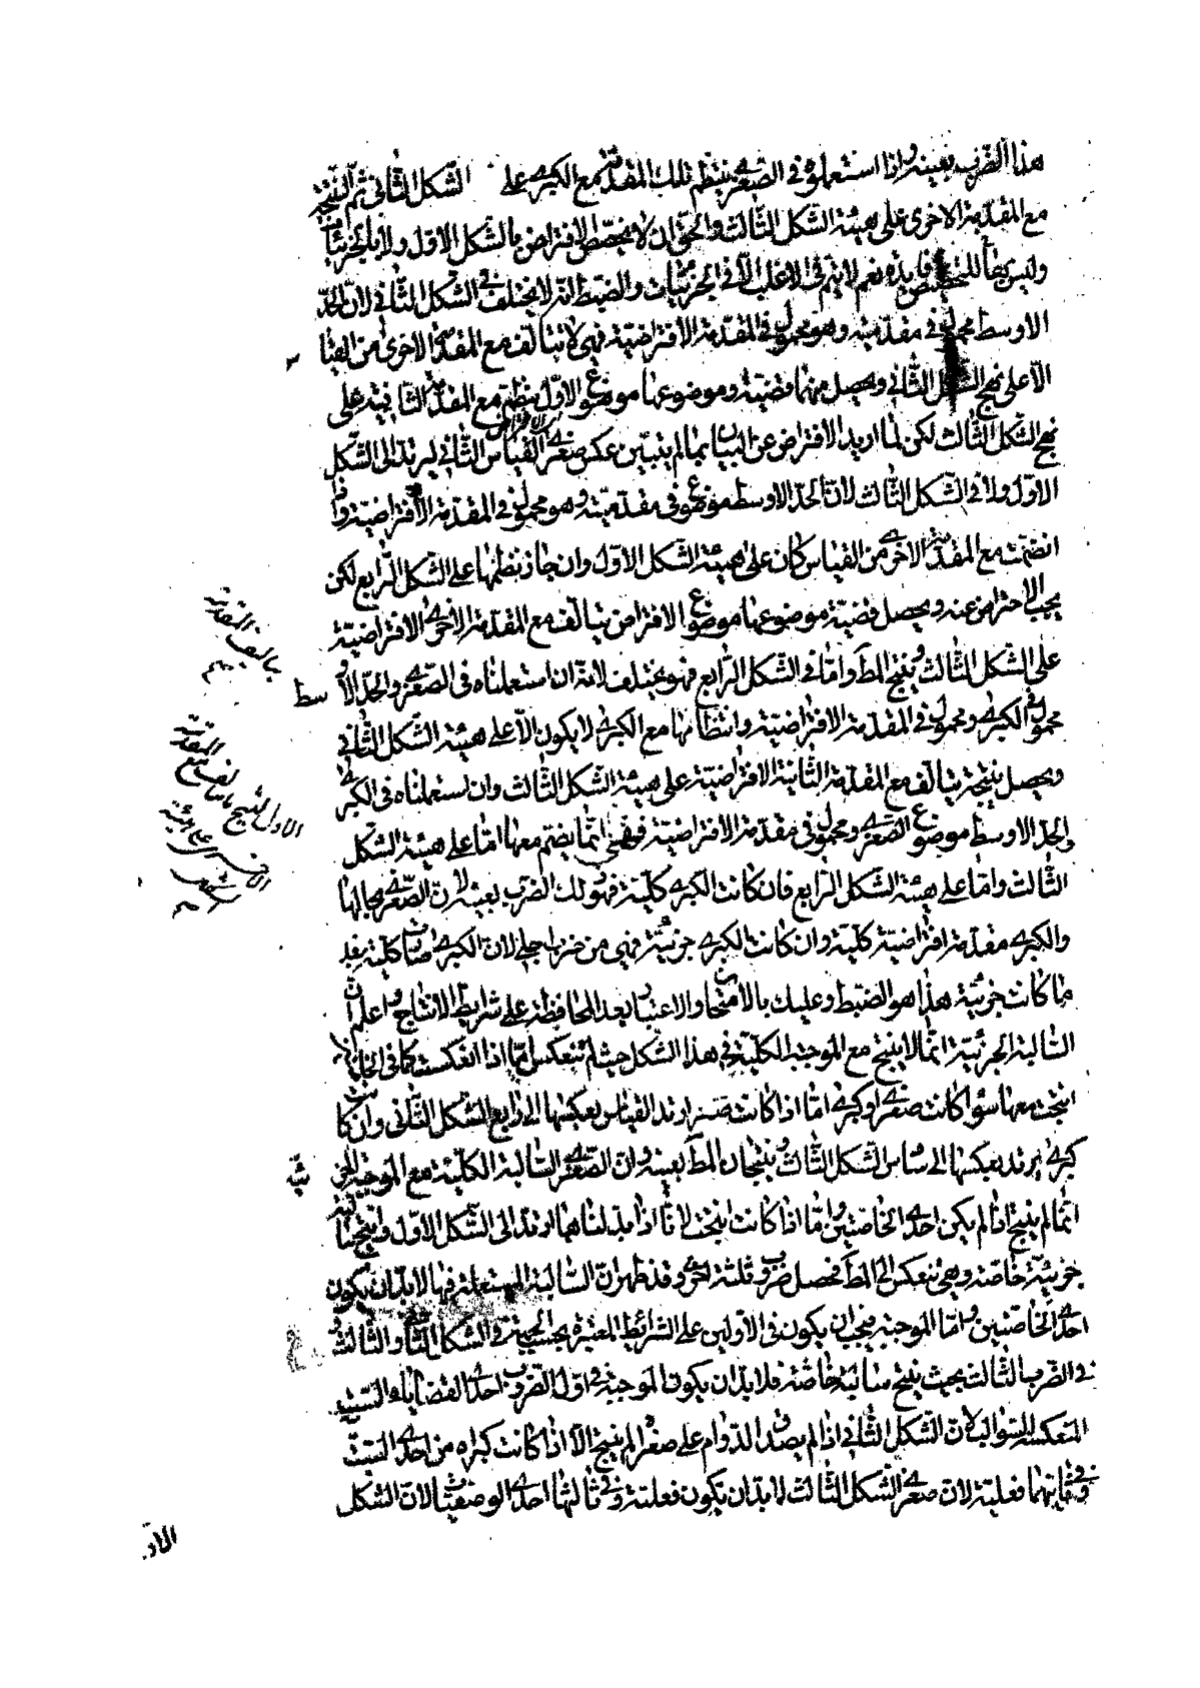 هذا الضرب بعينه واذا استعملوه فى الصغرى ينتظم تلك المقدمة مع الكبرى على الشكل الثانى ثم النتيجة
مع المقدمة الاخرى على هيئة الشكل الثالث والحق ان لا يختص الافتراض بالشكل الاول ولا بالجزئيات
وليس بها للتخصيص فايدة نعم لا يتم فى الاغلب الا فى الجزئيات والضبط انه لا يختلف فى الشكل الثانى لان الحد
الاوسط محمول فى مقدمتيه وهو محمول فى المقدمة الافتراضية فهى لا تتالف مع المقدمة الاخرى من القياس
الا على نهج الشكل الثانى ويحصل منهما قضية وموضوعها موضوع الاول ينظم مع المقدمة الثانية على
نهج الشكل الثالث لكن لما اريد الافتراض عن البيان بما لم يتبين عكس صغرى القياس الثانى ليرتد الى الشكل
الاول ولا فى الشكل الثالث لان الحد الاوسط موضوع فى مقدمتيه وهو محمول فى المقدمة الافتراضية واذا
انضمت مع المقدمة الاخرى من القياس كان على هيئة الشكل الاول وان جاز نظمها على الشكل الرابع لكن
يجب الاحتراض عنه ويحصل قضية موضوعها موضوع الافتراض يتالف مع المقدمة الاخرى الافتراضية
على الشكل الثالث وينتج المط واما فى الشكل الرابع فهو يختلف لانه ان استعملناه فى الصغرى والحد الاوسط
محمول فى الكبرى ومحمول فى المقدمة الافتراضية وانتظامها مع الكبرى لا يكون الا على هيئة الشكل الثانى
ويحصل نتيجة يتالف مع المقدمة الثانية الافتراضية على هيئة الشكل الثالث وان استعملناه فى الكبرى
والحد الاوسط موضوع الصغرى ومحمول فى مقدمة الافتراضية فهى انما ينضم معها اما على هيئة الشكل
الثالث واما على هيئة الشكل الرابع فان كانت الكبرى كلية فهو ذلك الضرب بعينه لان الصغرى بحالها
والكبرى مقدمة افتراضية كلية وان كانت الكبرى جزئية فهى من ضرب اجلى لان الكبرى صارت كلية بعد
ما كانت جزئية هذا هو الضبط وعليك بالامتحان والاعتبار بعد المحافظة على شرايط الانتاج واعلم ان
السالبة الجزئية انما لا ينتج مع الموجبة الكلية فى هذا الشكل حيث لم تنعكس اما اذا انعكست كما فى الخاصتين
انتجت معها سواء كانت صغرى او كبرى اما اذا كانت صغرى ارتد القياس بعكسها الى رابع الشكل الثانى وان كانت
كبرى يرتد بعكسها الى سادس الشكل الثالث وينتجان المط بعينه وان الصغرى السالبة الكلية مع الموجبة الجزئية
انما لم ينتج اذا لم يكن احدى الخاصتين واما اذا كانت انتجت لانا اذا بدلناهما ارتد الى الشكل الاول وانتج سالبة
جزئية خاصة وهى تنعكس الى المط فحصل ضروب ثلثة اخرى وقد ظهر ان السالبة المستعملة فيها لا بد ان يكون
احدى الخاصتين واما الموجبة فيجب ان يكون فى الاولين على الشرائط المعتبرة بحسب الجهة فى الشكل الثانى والثالث
وفى الضرب الثالث بحيث ينتج سالبة خاصة فلا بد ان يكون الموجبة فى اول الضروب احدى القضايا الست
المنعكسة السوالب لان الشكل الثانى اذا لم يصدق الدوام على صغراه لم ينتج الا اذا كانت كبراه من احدى الست
وفى ثانيهما فعلية لان صغرى الشكل الثالث لا بد ان يكون فعلية وفى ثالثها احدى الوصفيات لان الشكل
الاو